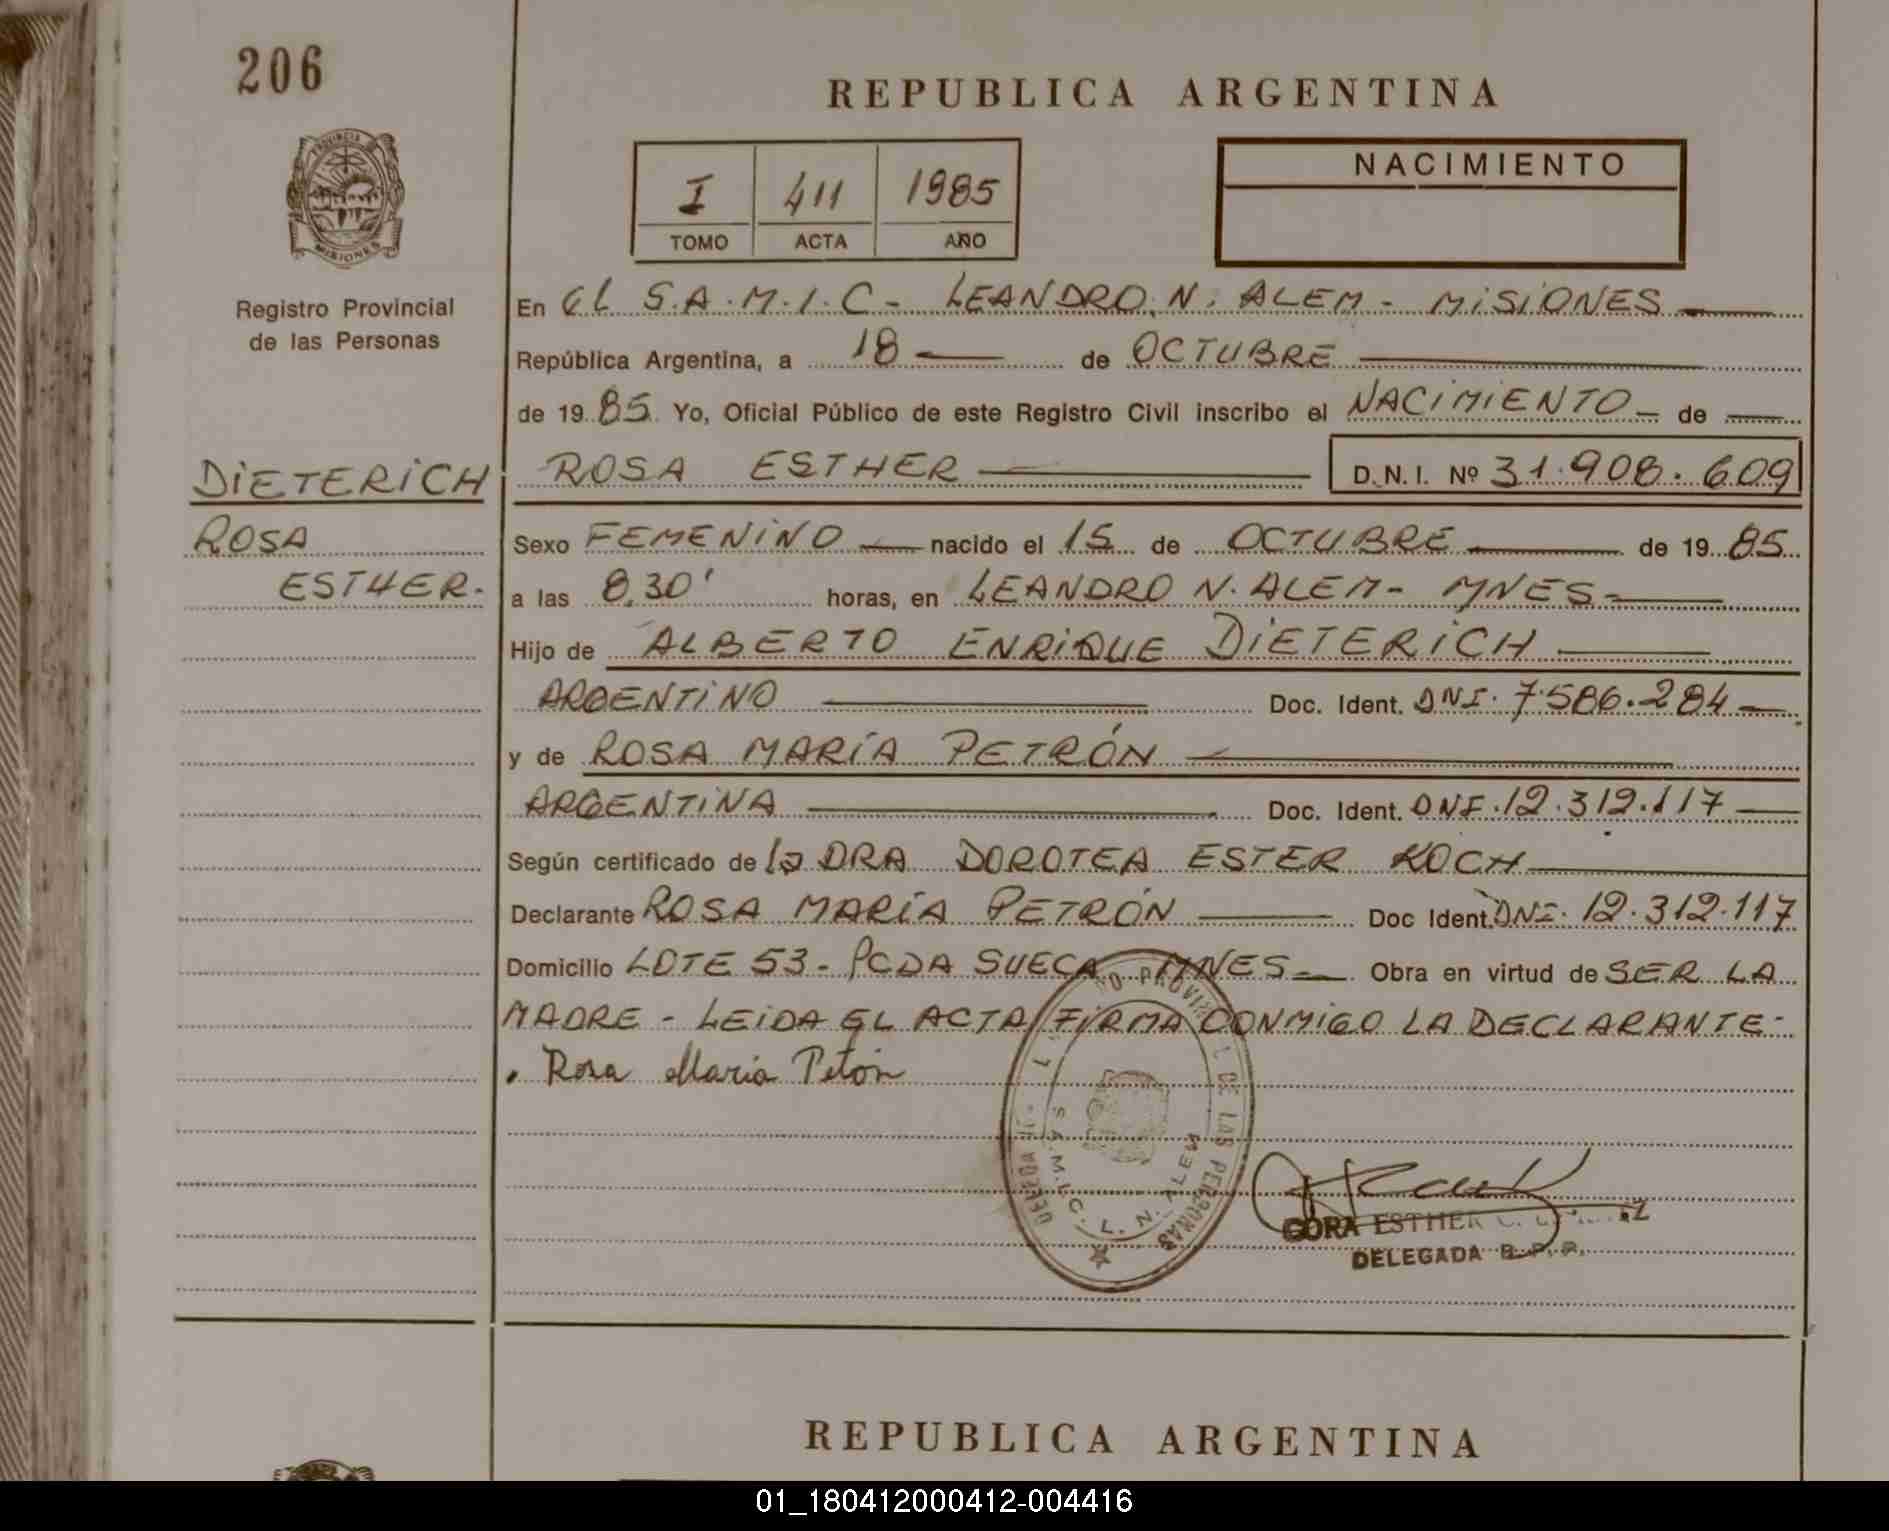 206
REPUBLICA ARGENTINA
PROVINCIA DE
MISIONES
Registro Provincial
de las Personas
I 411 1985
TOMO ACTA AÑO
NACIMIENTO
En EL S.A.M.I.C- LEANDRO. N. ALEM - MISIONES
República Argentina, a 18 de OCTUBRE
de 19 85 Yo, Oficial Público de este Registro Civil inscribo el NACIMIENTO de
DIETERICH ROSA ESTHER D.N.I. Nº 31.908.609
ROSA Sexo FEMENINO nacido el 15 de OCTUBRE de 19 85
ESTHER. a las 8,30' horas, en LEANDRO N. ALEM - MNES-
Hijo de ALBERTO ENRIQUE DIETERICH
ARGENTINO Doc. Ident. DNI. 7.586.284
y de ROSA MARÍA PETRÓN
ARGENTINA Doc. Ident. DNI. 12.312.117
Según certificado de la DRA DOROTEA ESTER KOCH
Declarante ROSA MARÍA PETRÓN Doc Ident. DNI. 12.312.117
Domicilio LOTE 53 - PCDA SUECA MNES Obra en virtud de SER LA
MADRE - LEIDA EL ACTA FIRMA CONMIGO LA DECLARANTE-
. Rosa Maria Petón
DE LAS PERSONAS
S.A.M.I.C. L. N. ALEM
CORA ESTHER
DELEGADA R.P.P.
REPUBLICA ARGENTINA
01_180412000412-004416